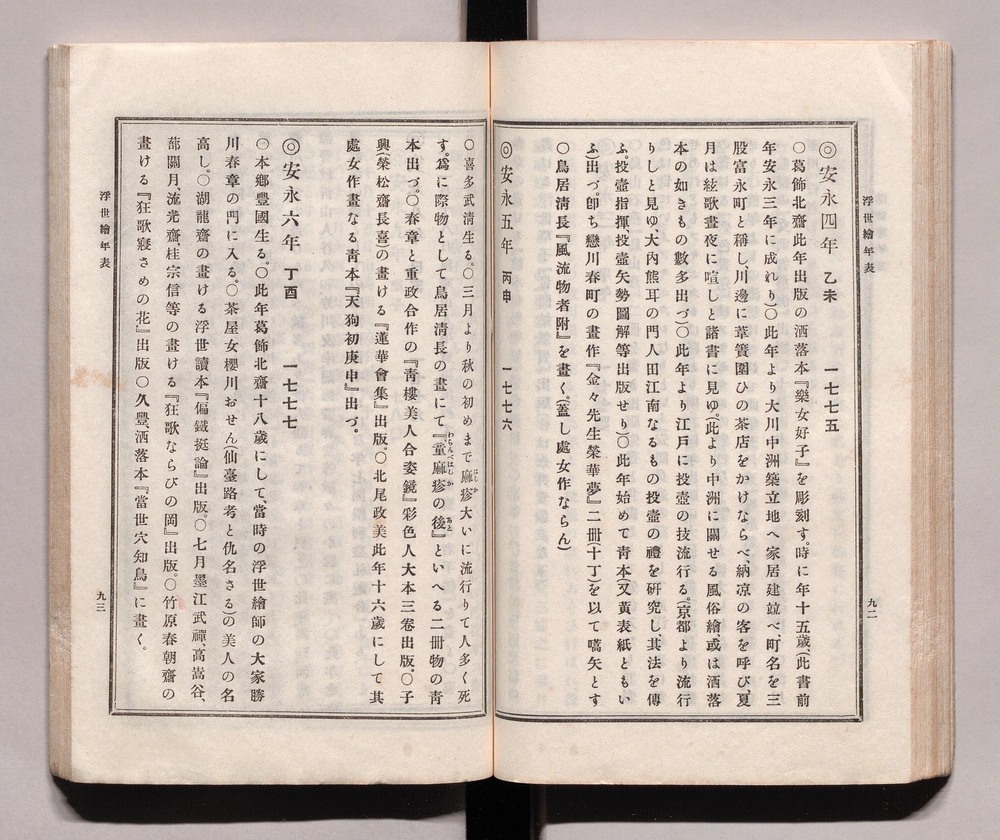 浮世繪年表
九二
◎安永四年 乙未 一七七五
〇葛飾北齋此年出版の洒落本『樂女好子』を彫刻す。時に年十五歳、(此書前
年安永三年に成れり)〇此年より大川中洲築立地へ家居建竝べ、町名を三
股富永町と稱し、川邊に葦簀圍ひの茶店をかけならべ、納凉の客を呼び、夏
月は絃歌晝夜に喧しと諸書に見ゆ。(此より中洲に關せる風俗繪、或は洒落
本の如きもの數多出づ)〇此年より江戸に投壺の技流行る。(京都より流行
りしと見ゆ大内熊耳の門人田江南なるもの投壺の禮を研究し、其法を傳
ふ。投壺指揮投壺矢勢圖解等出版せり)〇此年始めて靑本(又黃表紙ともい
ふ)出づ。卽ち戀川春町の畫作『金々先生榮華夢』二冊(十丁)を以て嚆矢とす
〇鳥居淸長『風流物者附』を畫く。(蓋し處女作ならん)
◎安永五年 丙申 一七七六
〇喜多武淸生る。〇三月より秋の初めまで麻疹はしか大いに流行りて人多く死
す。爲に際物として鳥居淸長の畫にて『童麻疹の後わらんべはしかあと』といへる二冊物の靑
本出づ。〇春章と重政合作の『靑樓美人合姿鏡』彩色人大本三卷出版。〇子
興(榮松齋長喜)の畫ける『蓮華會集』出版。〇北尾政美此年十六歳にして其
處女作畫なる靑本『天狗初庚申』出づ。
◎安永六年 丁酉 一七七七
〇一本鄕豐國生る。〇此年葛飾北齋十八歳にして、當時の浮世繪師の大家勝
川春章の門に入る。〇茶屋女櫻川おせん(仙臺路考と仇名さる)の美人の名
高し。〇湖龍齋の畫ける浮世讀本『偏鐵挺論』出版。〇七月墨江武禪、高嵩谷、
蔀關月、流光齋桂宗信等の畫ける『狂歌ならびの岡』出版。〇竹原春朝齋の
畫ける『狂歌寢さめの花』出版〇久豐、洒落本『當世穴知鳥』に畫く。
浮世繪年表
九三